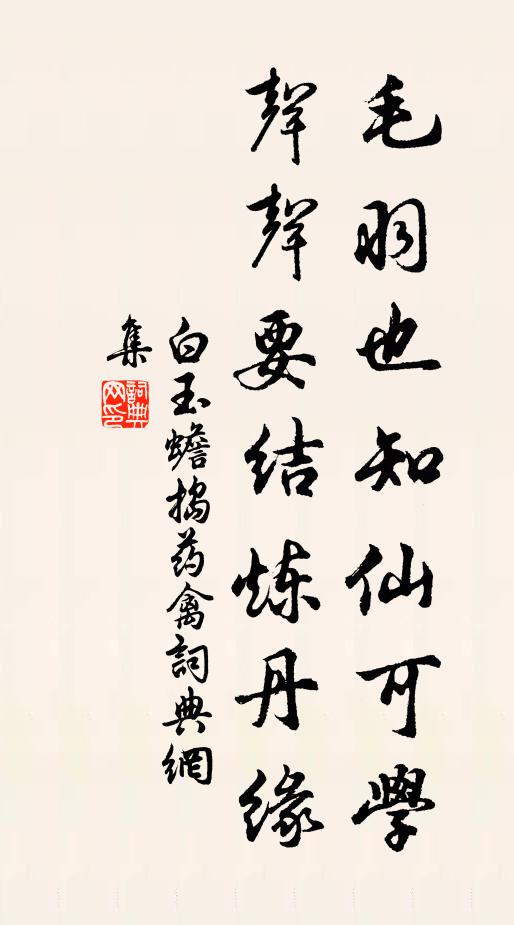 毛羽也知仙可學
聲聲要结炼丹緣
白玉蟾搗药禽詞典網
集
詞典网印